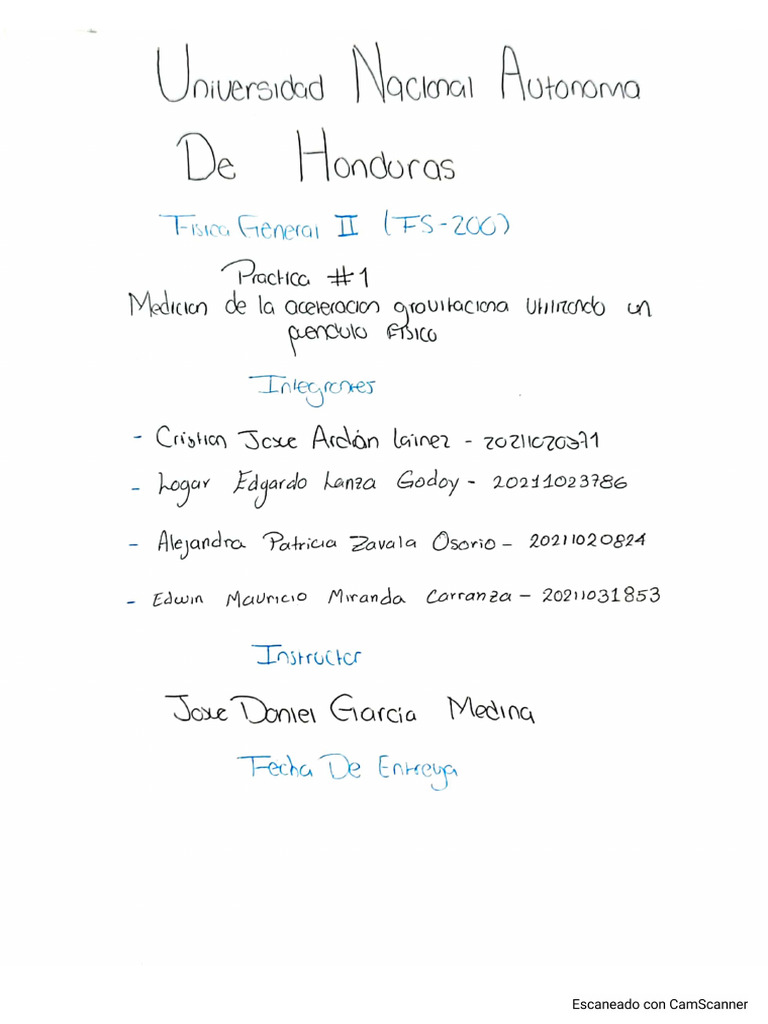 Universidad Nacional Autonoma
De Honduras
Fisica General II (FS-200)
Practica #1
Medicion de la aceleracion gravitaciona utilizando un
pendulo Fisico
Integrantes
- Cristian Jose Ardón Lainez - 20211020371
- Logar Edgardo Lanza Godoy - 20211023786
- Alejandra Patricia Zavala Osorio - 20211020824
- Edwin Mauricio Miranda Carranza - 20211031853
Instructor
Jose Daniel Garcia Medina
Fecha De Entrega
Escaneado con CamScanner